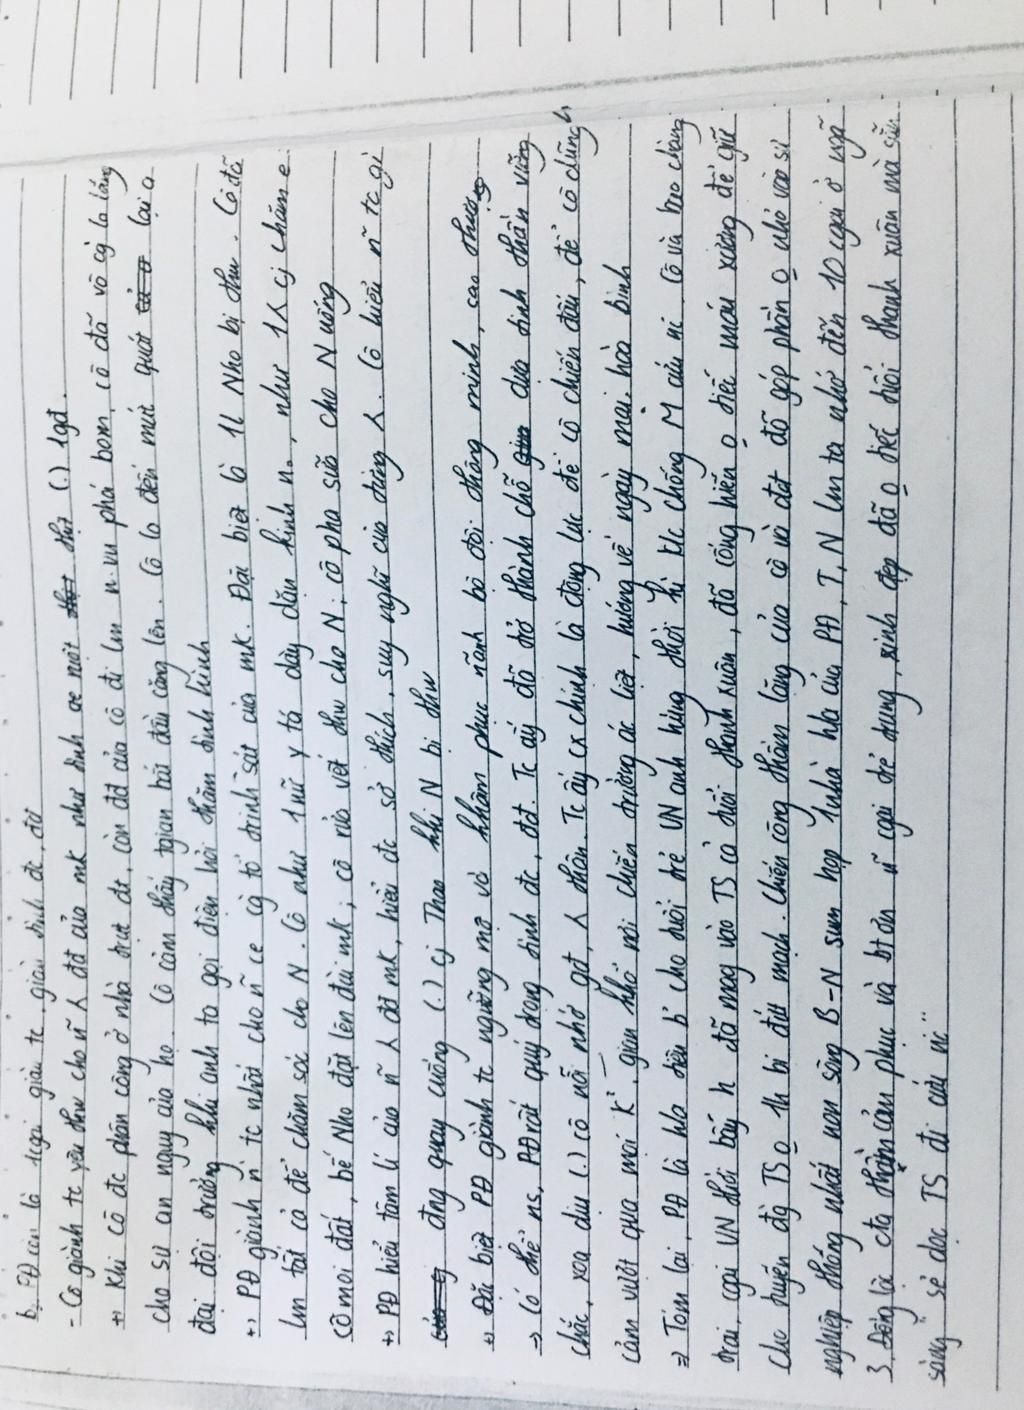 b, PĐ còn là 1 cgái giàu tc, giàu tình đc, đđ
- Cô giành tc yêu thw cho ~ ng đđ của mk như tình ae ruột (.) 1 gđ.
+, Khi cô đc phân công ở nhà trực đt, còn đđ của cô đi lm n.vu phá bom, cô đã vô cg lo lắng
cho sự an nguy của họ. Cô cảm thấy tgian bắt đầu căng lên. Cô lo đến mức quát lại a
đại đội trưởng khi anh ta gọi điện hỏi thăm tình hình
+, PĐ giành ~ tc nhất cho ~ ce cg tổ trinh sát của mk. Đặc biệt là 1l Nho bị thw. Cô đã
lm tất cả để chăm sóc cho N. Cô như 1 nữ y tá dày dặn kinh n., như 1 ng cj chăm e.
Cô moi đất, bế Nho đặt lên đùi mk, cô rửa vết thw cho N, cô pha sữa cho N uống
+, PĐ hiểu tâm lí của ~ ng đđ mk, hiểu đc sở thích, suy nghĩ của từng ng. Cô hiểu ~ tc ai
đng quay cuồng (.) cj Thao khi N bị thw
+, Đặc biệt PĐ giành tc ngưỡng mộ và khâm phục ~ anh bộ đội thông minh, cao thượng
→ Có thể ns, PĐ rất quý trọng tình đc, đđ. Tc ấy đã trở thành chỗ dựa tinh thần vững
chắc, xoa dịu (.) cô nỗi nhớ gđ, ng thân. Tc ấy cx chính là động lực để cô chiến đấu, để cô dũng
cảm vượt qua mọi k², gian khổ nơi chiến trường ác liệt, hướng về ngày mai hoà bình
⇒ Tóm lại, PĐ là hh tiêu b' cho tuổi trẻ VN anh hùng thời kì k/c chống M cứu nc. Cô và bao chàng
trai, cgái VN thời bấy h đã mang vào TS cả tuổi thanh xuân, đã cống hiến o tiếc máu xương để giữ
cho tuyến đg TS o 1h bị đứt mạch. Chiến công thầm lặng của cô và đđ đã góp phần o nhỏ vào sự
nghiệp thống nhất non sông B-N sum họp 1 nhà. hh của PĐ, T, N lm ta nhớ đến 10 cgái ở ngã
3 Đồng lộc. cta thầm cảm phục và btơn ~ cgái trẻ trung, xinh đẹp đã o tiếc tuổi thanh xuân mà sẵn
sàng "sẻ dọc TS đi cứu nc"